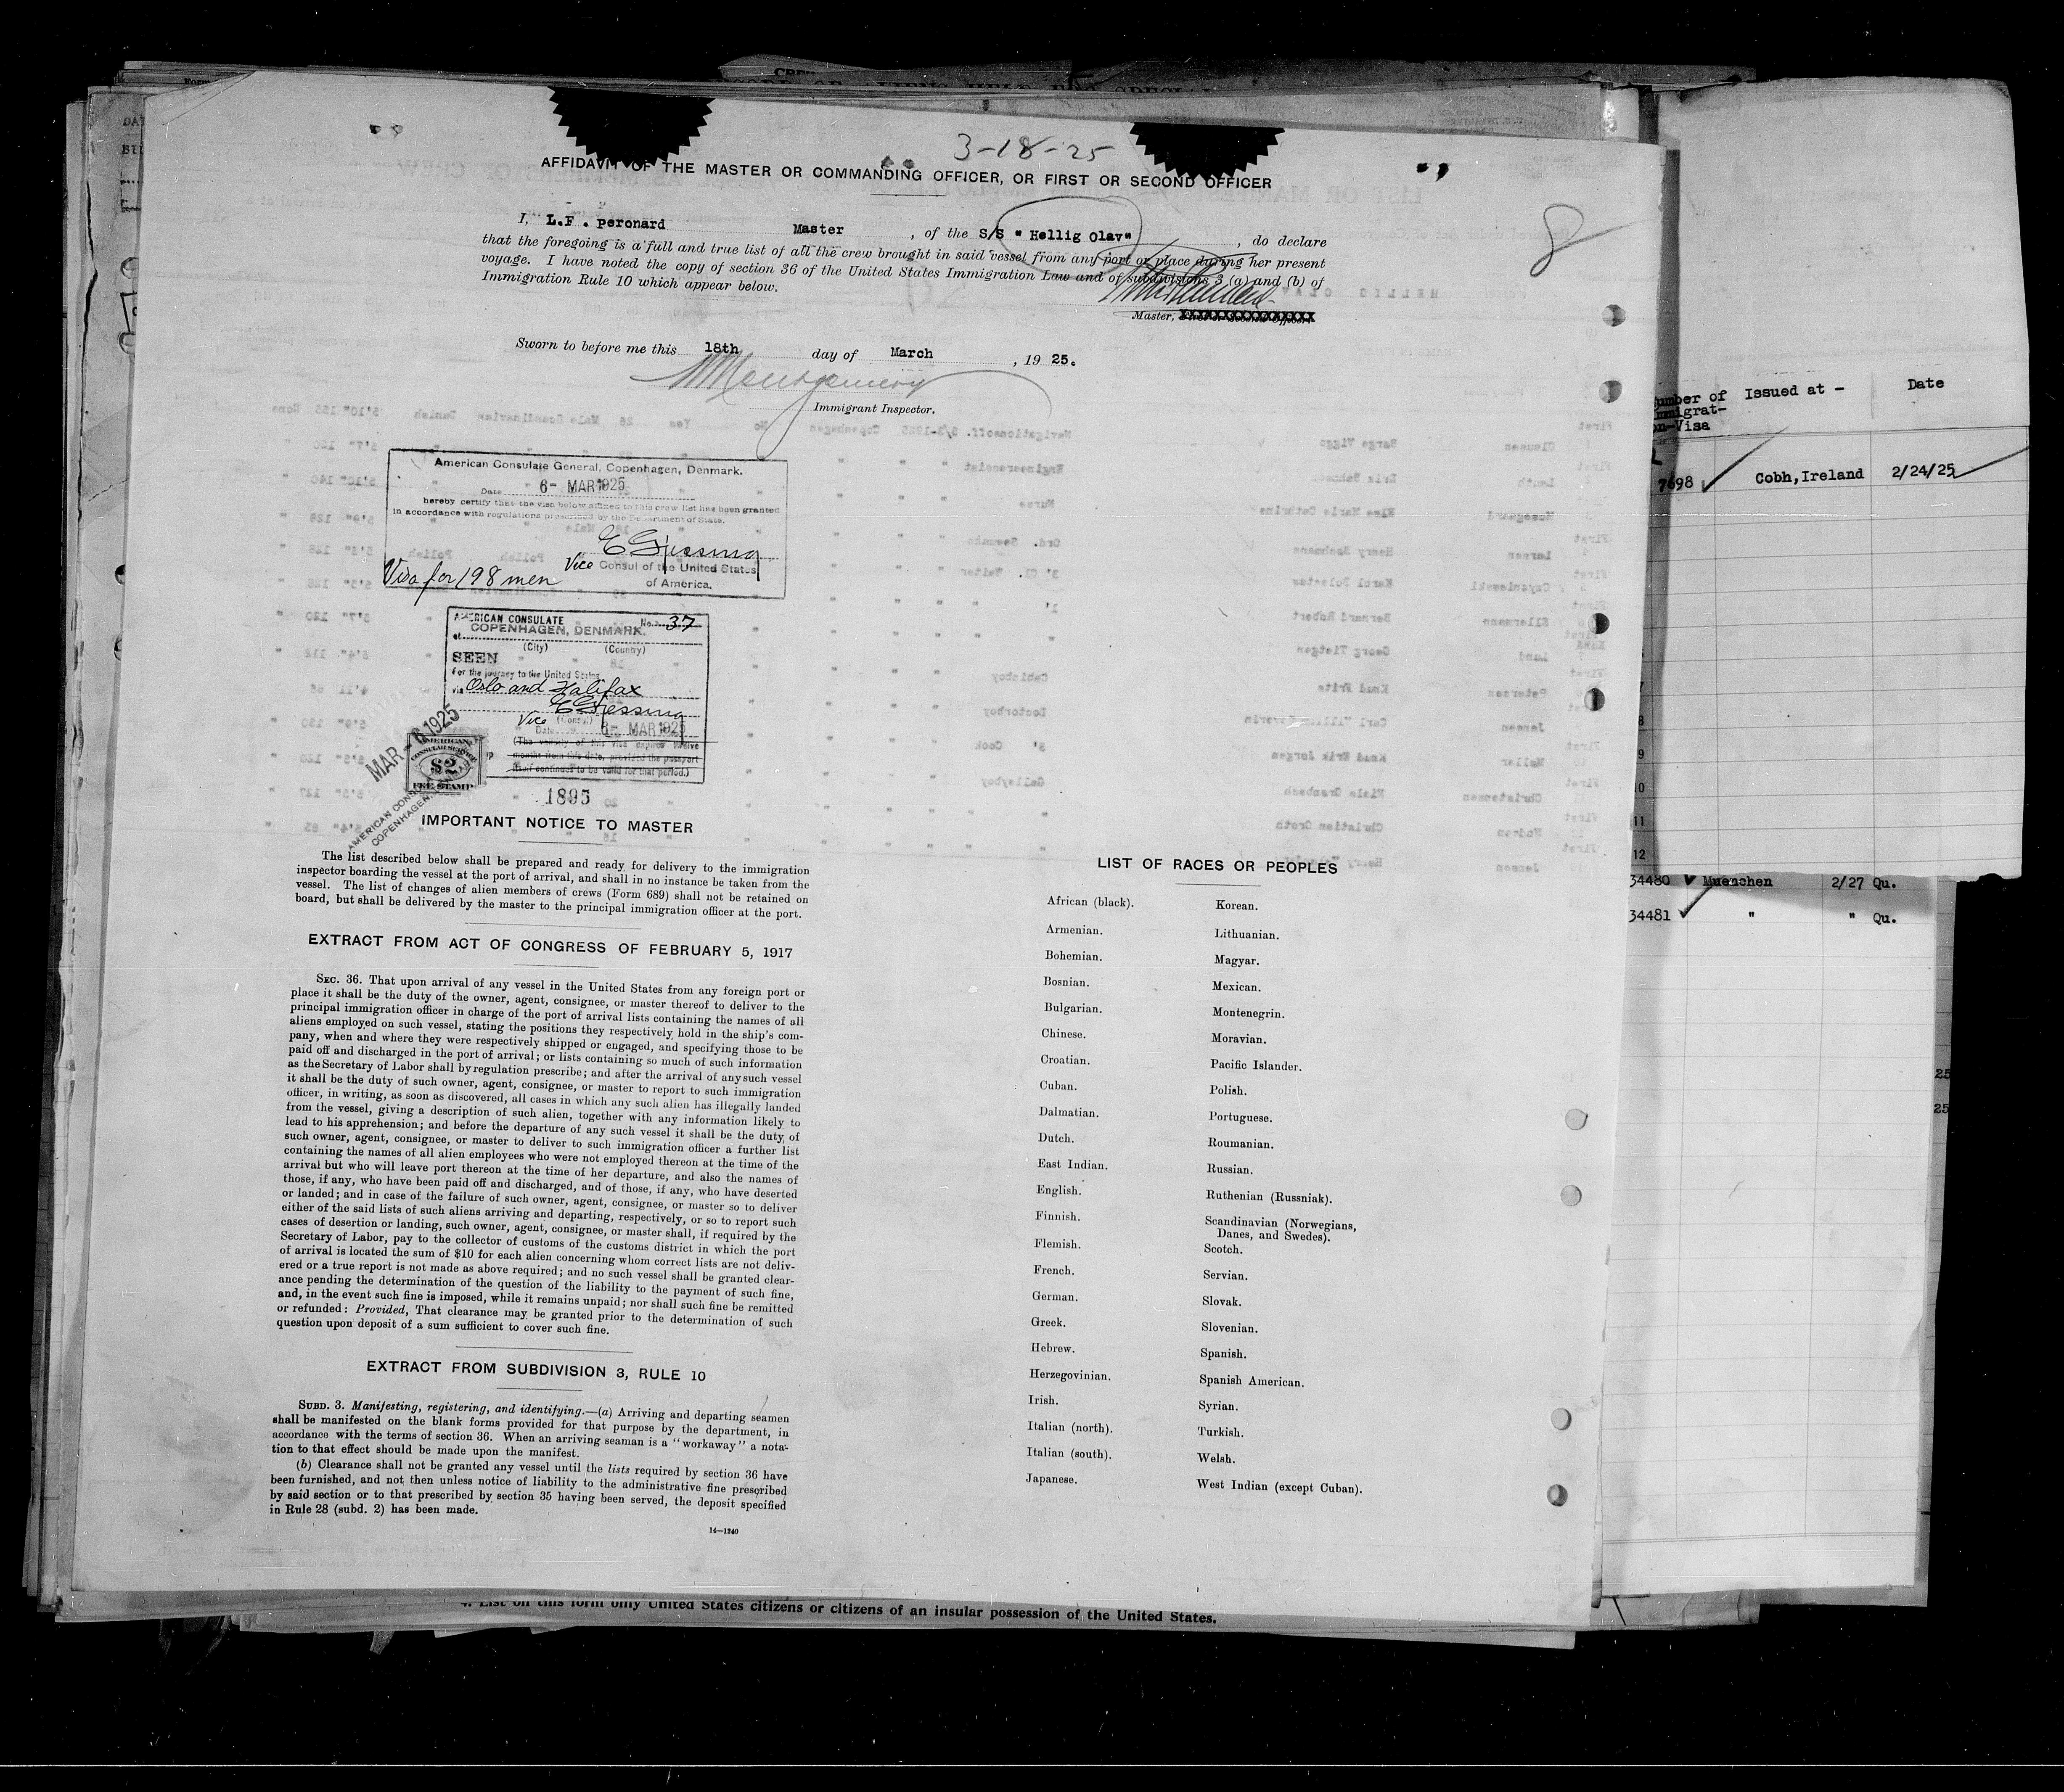 3-18-25
AFFIDAVIT OF THE MASTER OR COMMANDING OFFICER, OR FIRST OR SECOND OFFICER
8
I, L.F. peronard Master , of the S/S "Hellig Olav" , do declare
that the foregoing is a full and true list of all the crew brought in said vessel from any port or place during her present
voyage. I have noted the copy of section 36 of the United States Immigration Law and of subdivisions 3 (a) and (b) of
Immigration Rule 10 which appear below.
Master,
Sworn to before me this 18th day of March , 19 25.
Montgomery
Immigrant Inspector.
American Consulate General, Copenhagen, Denmark.
Date 6- MAR 1925
hereby certify that the visa below affixed to this crew list has been granted
in accordance with regulations prescribed by the Department of State.
Vice Consul of the United States
of America.
Visa for 198 men
AMERICAN CONSULATE No. 37
at COPENHAGEN, DENMARK.
(City) (Country)
SEEN
For the journey to the United States
via Oslo and Halifax
Vice (Consul)
Date 6- MAR 1925
(The validity of this visa expires twelve
months from this date, provided the passport
itself continues to be valid for that period.)
MAR - 6 1925
AMERICAN
CONSULAR SERVICE
$2
FEE STAMP
AMERICAN CONS
COPENHAGEN,
1895
IMPORTANT NOTICE TO MASTER
The list described below shall be prepared and ready for delivery to the immigration
inspector boarding the vessel at the port of arrival, and shall in no instance be taken from the
vessel. The list of changes of alien members of crews (Form 689) shall not be retained on
board, but shall be delivered by the master to the principal immigration officer at the port.
EXTRACT FROM ACT OF CONGRESS OF FEBRUARY 5, 1917
SEC. 36. That upon arrival of any vessel in the United States from any foreign port or
place it shall be the duty of the owner, agent, consignee, or master thereof to deliver to the
principal immigration officer in charge of the port of arrival lists containing the names of all
aliens employed on such vessel, stating the positions they respectively hold in the ship's com-
pany, when and where they were respectively shipped or engaged, and specifying those to be
paid off and discharged in the port of arrival; or lists containing so much of such information
as the Secretary of Labor shall by regulation prescribe; and after the arrival of any such vessel
it shall be the duty of such owner, agent, consignee, or master to report to such immigration
officer, in writing, as soon as discovered, all cases in which any such alien has illegally landed
from the vessel, giving a description of such alien, together with any information likely to
lead to his apprehension; and before the departure of any such vessel it shall be the duty of
such owner, agent, consignee, or master to deliver to such immigration officer a further list
containing the names of all alien employees who were not employed thereon at the time of the
arrival but who will leave port thereon at the time of her departure, and also the names of
those, if any, who have been paid off and discharged, and of those, if any, who have deserted
or landed; and in case of the failure of such owner, agent, consignee, or master so to deliver
either of the said lists of such aliens arriving and departing, respectively, or so to report such
cases of desertion or landing, such owner, agent, consignee, or master shall, if required by the
Secretary of Labor, pay to the collector of customs of the customs district in which the port
of arrival is located the sum of $10 for each alien concerning whom correct lists are not deliv-
ered or a true report is not made as above required; and no such vessel shall be granted clear-
ance pending the determination of the question of the liability to the payment of such fine,
and, in the event such fine is imposed, while it remains unpaid; nor shall such fine be remitted
or refunded: Provided, That clearance may be granted prior to the determination of such
question upon deposit of a sum sufficient to cover such fine.
EXTRACT FROM SUBDIVISION 3, RULE 10
SUBD. 3. Manifesting, registering, and identifying.—(a) Arriving and departing seamen
shall be manifested on the blank forms provided for that purpose by the department, in
accordance with the terms of section 36. When an arriving seaman is a "workaway" a nota-
tion to that effect should be made upon the manifest.
(b) Clearance shall not be granted any vessel until the lists required by section 36 have
been furnished, and not then unless notice of liability to the administrative fine prescribed
by said section or to that prescribed by section 35 having been served, the deposit specified
in Rule 28 (subd. 2) has been made.
14—1240
LIST OF RACES OR PEOPLES
African (black).
Armenian.
Bohemian.
Bosnian.
Bulgarian.
Chinese.
Croatian.
Cuban.
Dalmatian.
Dutch.
East Indian.
English.
Finnish.
Flemish.
French.
German.
Greek.
Hebrew.
Herzegovinian.
Irish.
Italian (north).
Italian (south).
Japanese.
Korean.
Lithuanian.
Magyar.
Mexican.
Montenegrin.
Moravian.
Pacific Islander.
Polish.
Portuguese.
Roumanian.
Russian.
Ruthenian (Russniak).
Scandinavian (Norwegians,
Danes, and Swedes).
Scotch.
Servian.
Slovak.
Slovenian.
Spanish.
Spanish American.
Syrian.
Turkish.
Welsh.
West Indian (except Cuban).
4. List on this form only United States citizens or citizens of an insular possession of the United States.
umber of Issued at - Date
mmigrat-
on-Visa
7698 Cobh, Ireland 2/24/25
8
9
10
11
12
34480 Muenchen 2/27 Qu.
34481 " " Qu.
25
25